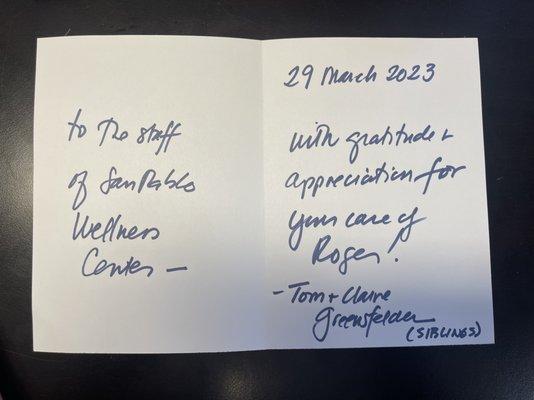 to The staff
of San Pablo
Wellness
Center –
29 March 2023
with gratitude +
appreciation for
your care of
Roger!
- Tom + Claire
Greensfelder
(SIBLINGS)